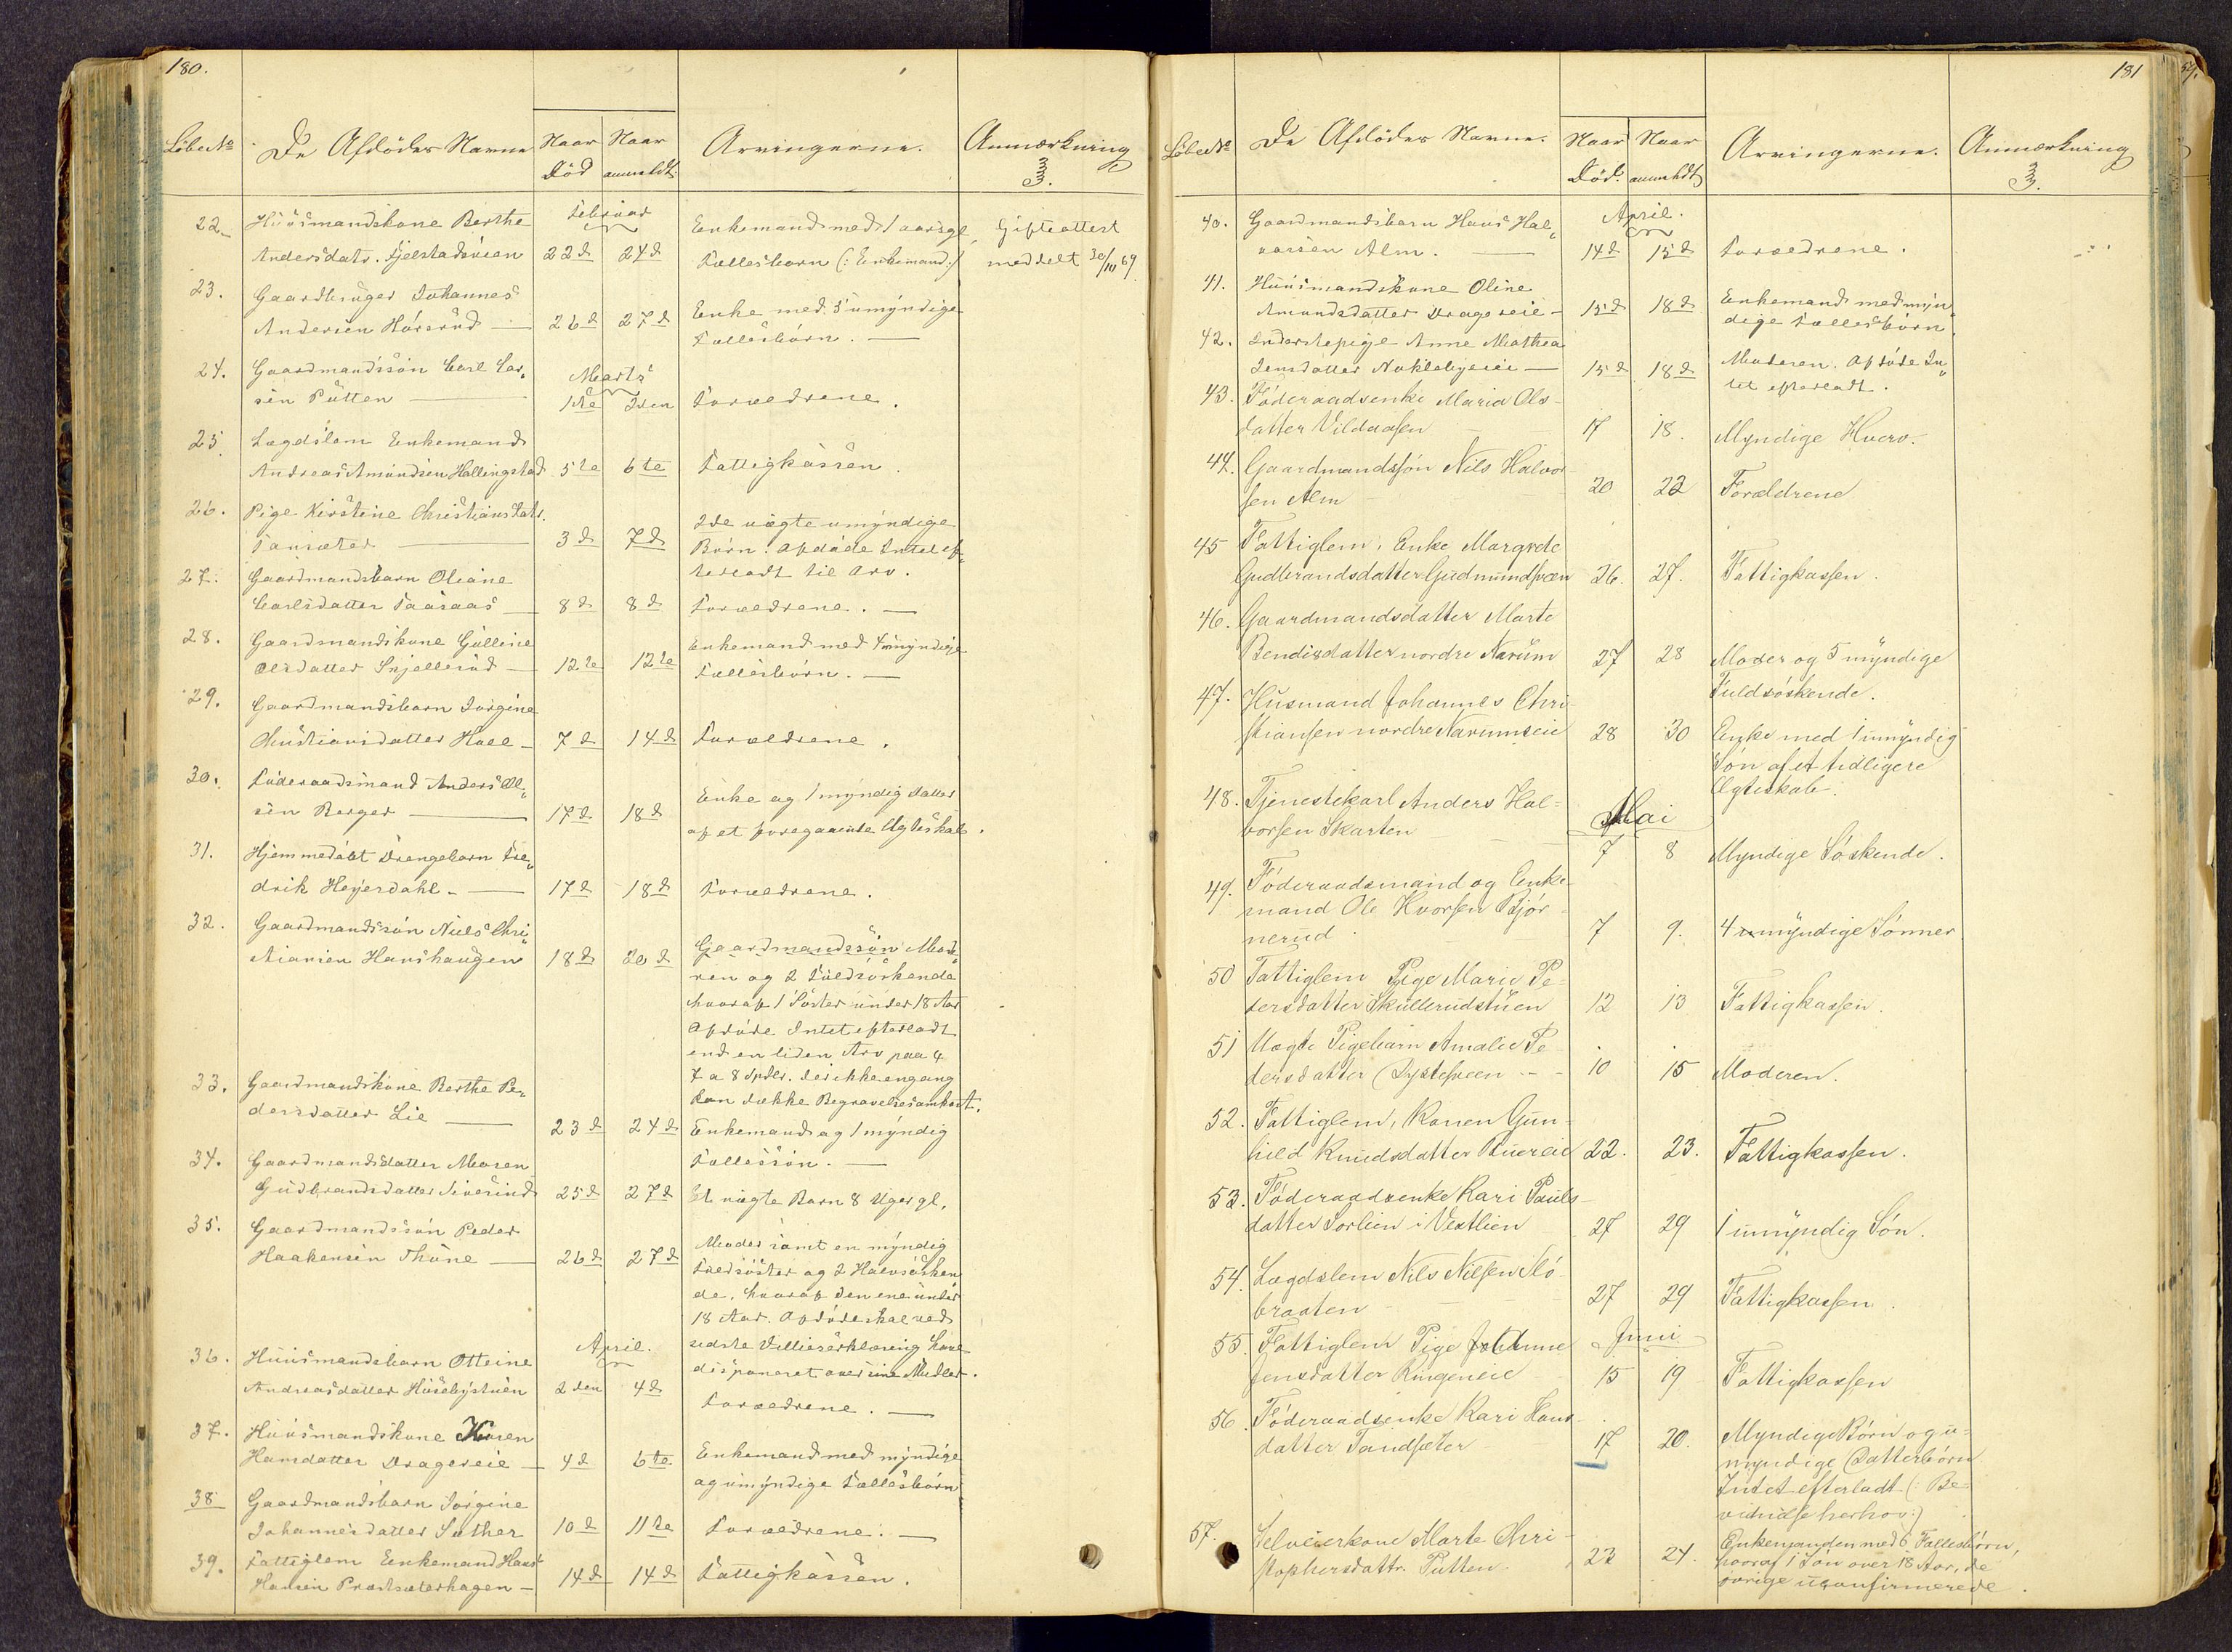 180.
Løbe No
De Afdödes Navne
Naar Död
Naar anmeldt
Arvingerne.
Anmærkning
3.
22.
Huusmandskone Berthe
Februar
Enkemand med 1 aarsgl.
Gifteattest
Andersdatr. Fjelstadsveen
22d
24d
Fællesbarn (: Enkemand :)
meddelt 30/10 69.
23.
Gaardbruger Johannes
Andersen Hörsrud
26d
27d
Enke med 5 umÿndige
Fællesbörn.
24.
Gaardmandssön Carl Lar„
Marts
sen Putten
1ste
2den
Forældrene.
25.
Lægdslem Enkemand
Andreas Amundsen Hallingstad
5te
6te
Fattigkassen.
26.
Pige Kirstine Christiansdatr.
3d
7d
2de uægte umÿndige
Börn. Afdöde Intet ef„
terladt til Arv.
27.
Gaardmandsbarn Oleane
Carlsdatter Taasaas
8d
8d
Forældrene.
28.
Gaardmandskone Gulline
Olsdatter Snjellerud
12te
12te
Enkemand med 4 umÿndige
Fællesbörn.
29.
Gaardmandsbarn Jörgine
Christiansdatter Hoel
7d
14d
Forældrene.
30.
Föderaadsmand Anders Ol„
sen Berger
17d
18d
Enke og 1 mÿndig Datter
af et foregaaende Ægteskab.
31.
Hjemmedöbt Drengebarn Fre„
drik Heÿerdahl
17d
18d
Forældrene.
32.
Gaardmandssön Niels Chri„
stiansen Hanshaugen
18d
20d
Gaardmandssön Mode„
ren og 2 Fuldsöskende
hvoraf 1 Söster under 18 Aar
Afdöde Intet efterladt
end en liden Arv paa 4
7 a 8 Spdlr. der ikke engang
kan dække Begravelsesomkost.
33.
Gaardmandskone Berthe Pe„
dersdatter Lie
23d
24d
Enkemand og 1 mÿndig
Fællessön.
34.
Gaardmandsdatter Maren
Gudbrandsdatter Siverind
25d
27d
Et uægte Barn 8 Uger gl.
35.
Gaardmandssön Peder
Haakensen Thune
26d
27d
Moder samt en mÿndig
Fuldsöster og 2 Halvsösken
de, hvoraf den ene under
18 Aar. Afdöde skal ved
sidste Villieserklæring have
disponeret over sine Midler.
36.
Huusmandsbarn Otteine
April.
Andreasdatter Husebÿstuen
2den
4d
Forældrene.
37.
Huusmandskone Karen
Hansdatter Dragereie
4d
6te
Enkemand med mÿndige
og umÿndige Fællesbörn
38
Gaardmandsbarn Jörgine
Johannesdatter Sother
10d
11te
Forældrene.
39.
Fattiglem Enkemand Hans
Hansen Præstsæterhagen
14d
14d
Fattigkassen.
181
Løbe No
De Afdödes Navne.
Naar Död.
Naar anmeldt
Arvingerne.
Anmærkning
3.
40.
Gaardmandsbarn Hans Hal„
April.
vorsen Alm.
14d
15d
Forældrene.
41.
Huusmandskone Oline
Amundsdatter Dragereie
15d
18d
Enkemand med mÿn„
dige Fællesbörn.
42.
Inderstepige Anne Mathea
Jensdatter Naklebyeiei
15d
18d
Moderen. Afdöde In„
tet efterladt.
43.
Föderaadsenke Maria Ols-
datter Vildaasen
17
18.
Myndige Hverv.
44.
Gaardmandssön Nils Halvor-
sen Alm
20
22
Forældrene
45
Fattiglem, Enke Margrete
Gudbrandsdatter Gudmundsveen
26.
27.
Fattigkassen.
46.
Gaardmandsdatter Marte
Bendixdatter nordre Narum
27
28
Moder og 5 myndige
Fuldsöskende.
47.
Husmand Johannes Chri-
stiansen nordre Narumseie
28
30
Enke med 1 umyndig
Sön af et tidligere
Ægteskab.
48.
Tjenestekarl Anders Hal=
Mai
vorsen Skarten
7
8
Myndige Söskende.
49.
Föderaadsmand og Enke-
mand Ole Kvorsen Björ-
nerud
7
9.
4 myndige Sönner
50
Fattiglem Pige Marie Pe=
dersdatter Skullerudstuen
12
13
Fattigkassen.
51
Uægte Pigebarn Amalie Pe-
dersdatter Dystesveen
10
15
Moderen.
52.
Fattiglem, Konen Gun-
hild Knudsdatter Ruereie
22.
23.
Fattigkassen.
53.
Föderaadsenke Kari Pauls-
datter Sorlien i Vestlien
27
29
1 umyndig Sön.
54.
Lægdslem Nils Nilsen Slö-
braaten
27
29
Fattigkassen.
55.
Fattiglem Pige Johanne
Juni
Jensdatter Ringeneie
15
19
Fattigkassen
56
Föderaadsenke Kari Hans-
datter Tandsæter
17
20.
Myndige Börn og u=
myndige Datterbörn
Intet efterladt (: Be=
vidnelse herhos :)
57.
Selveierkone Marte Chri-
stophersdattr. Putten.
22
24.
Enkemanden med 6 Fællesbörn,
hvoraf 1 Sön over 18 Aar, de
övrige uconfirmerede.